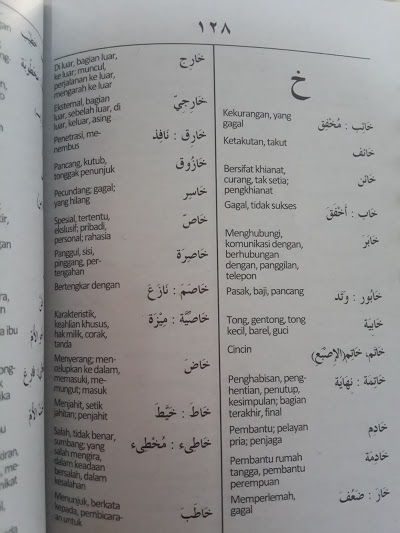 ١٢٨
خ
خَائِب : مُخْفِق
Kekurangan, yang
gagal
خَائف
Ketakutan, takut
خَائن
Bersifat khianat,
curang, tak setia;
pengkhianat
خَاب : أَخْفَقَ
Gagal, tidak sukses
خَابَرَ
Menghubungi,
komunikasi dengan,
berhubungan
dengan, panggilan,
telepon
خَابُور : وَتَد
Pasak, baji, pancang
خَابِيَة
Tong, gentong, tong
kecil, barel, guci
خَاتَم، خَاتِم(الإِصْبَع)
Cincin
خَاتِمَة : نِهَايَة
Penghabisan, peng-
hentian, penutup,
kesimpulan; bagian
terakhir, final
خَادِم
Pembantu; pelayan
pria; penjaga
خَادِمَة
Pembantu rumah
tangga, pembantu
perempuan
خَارَ : ضَعُفَ
Memperlemah,
gagal
خَارِج
Di luar, bagian luar,
ke luar; muncul,
perjalanan ke luar,
mengarah ke luar
خَارِجِيّ
Eksternal, bagian
luar, sebelah luar, di
luar, keluar, asing
خَارِق : نَافِذ
Penetrasi, me-
nembus
خَازُوق
Pancang, kutub,
tonggak penunjuk
خَاسِر
Pecundang; gagal;
yang hilang
خَاصّ
Spesial, tertentu,
ekslusif; pribadi,
personal; rahasia
خَاصِرَة
Panggul, sisi,
pinggang, per-
tengahan
خَاصَمَ : نَازَعَ
Bertengkar dengan
خَاصِّيَّة : مِيْزَة
Karakteristik,
keahlian khusus,
hak milik, corak,
tanda
خَاضَ
Menyerang; men-
celupkan ke dalam,
memasuki, me-
mungut; masuk
خَاطَ : خَيَّطَ
Menjahit, setik
jahitan; penjahit
خَاطِىء : مُخْطِىء
Salah, tidak benar,
sumbang; yang
salah mengira,
dalam keadaan
bersalah, dalam
kesalahan
خَاطَبَ
Menunjuk, berkata
kepada, pembicara-
an untuk